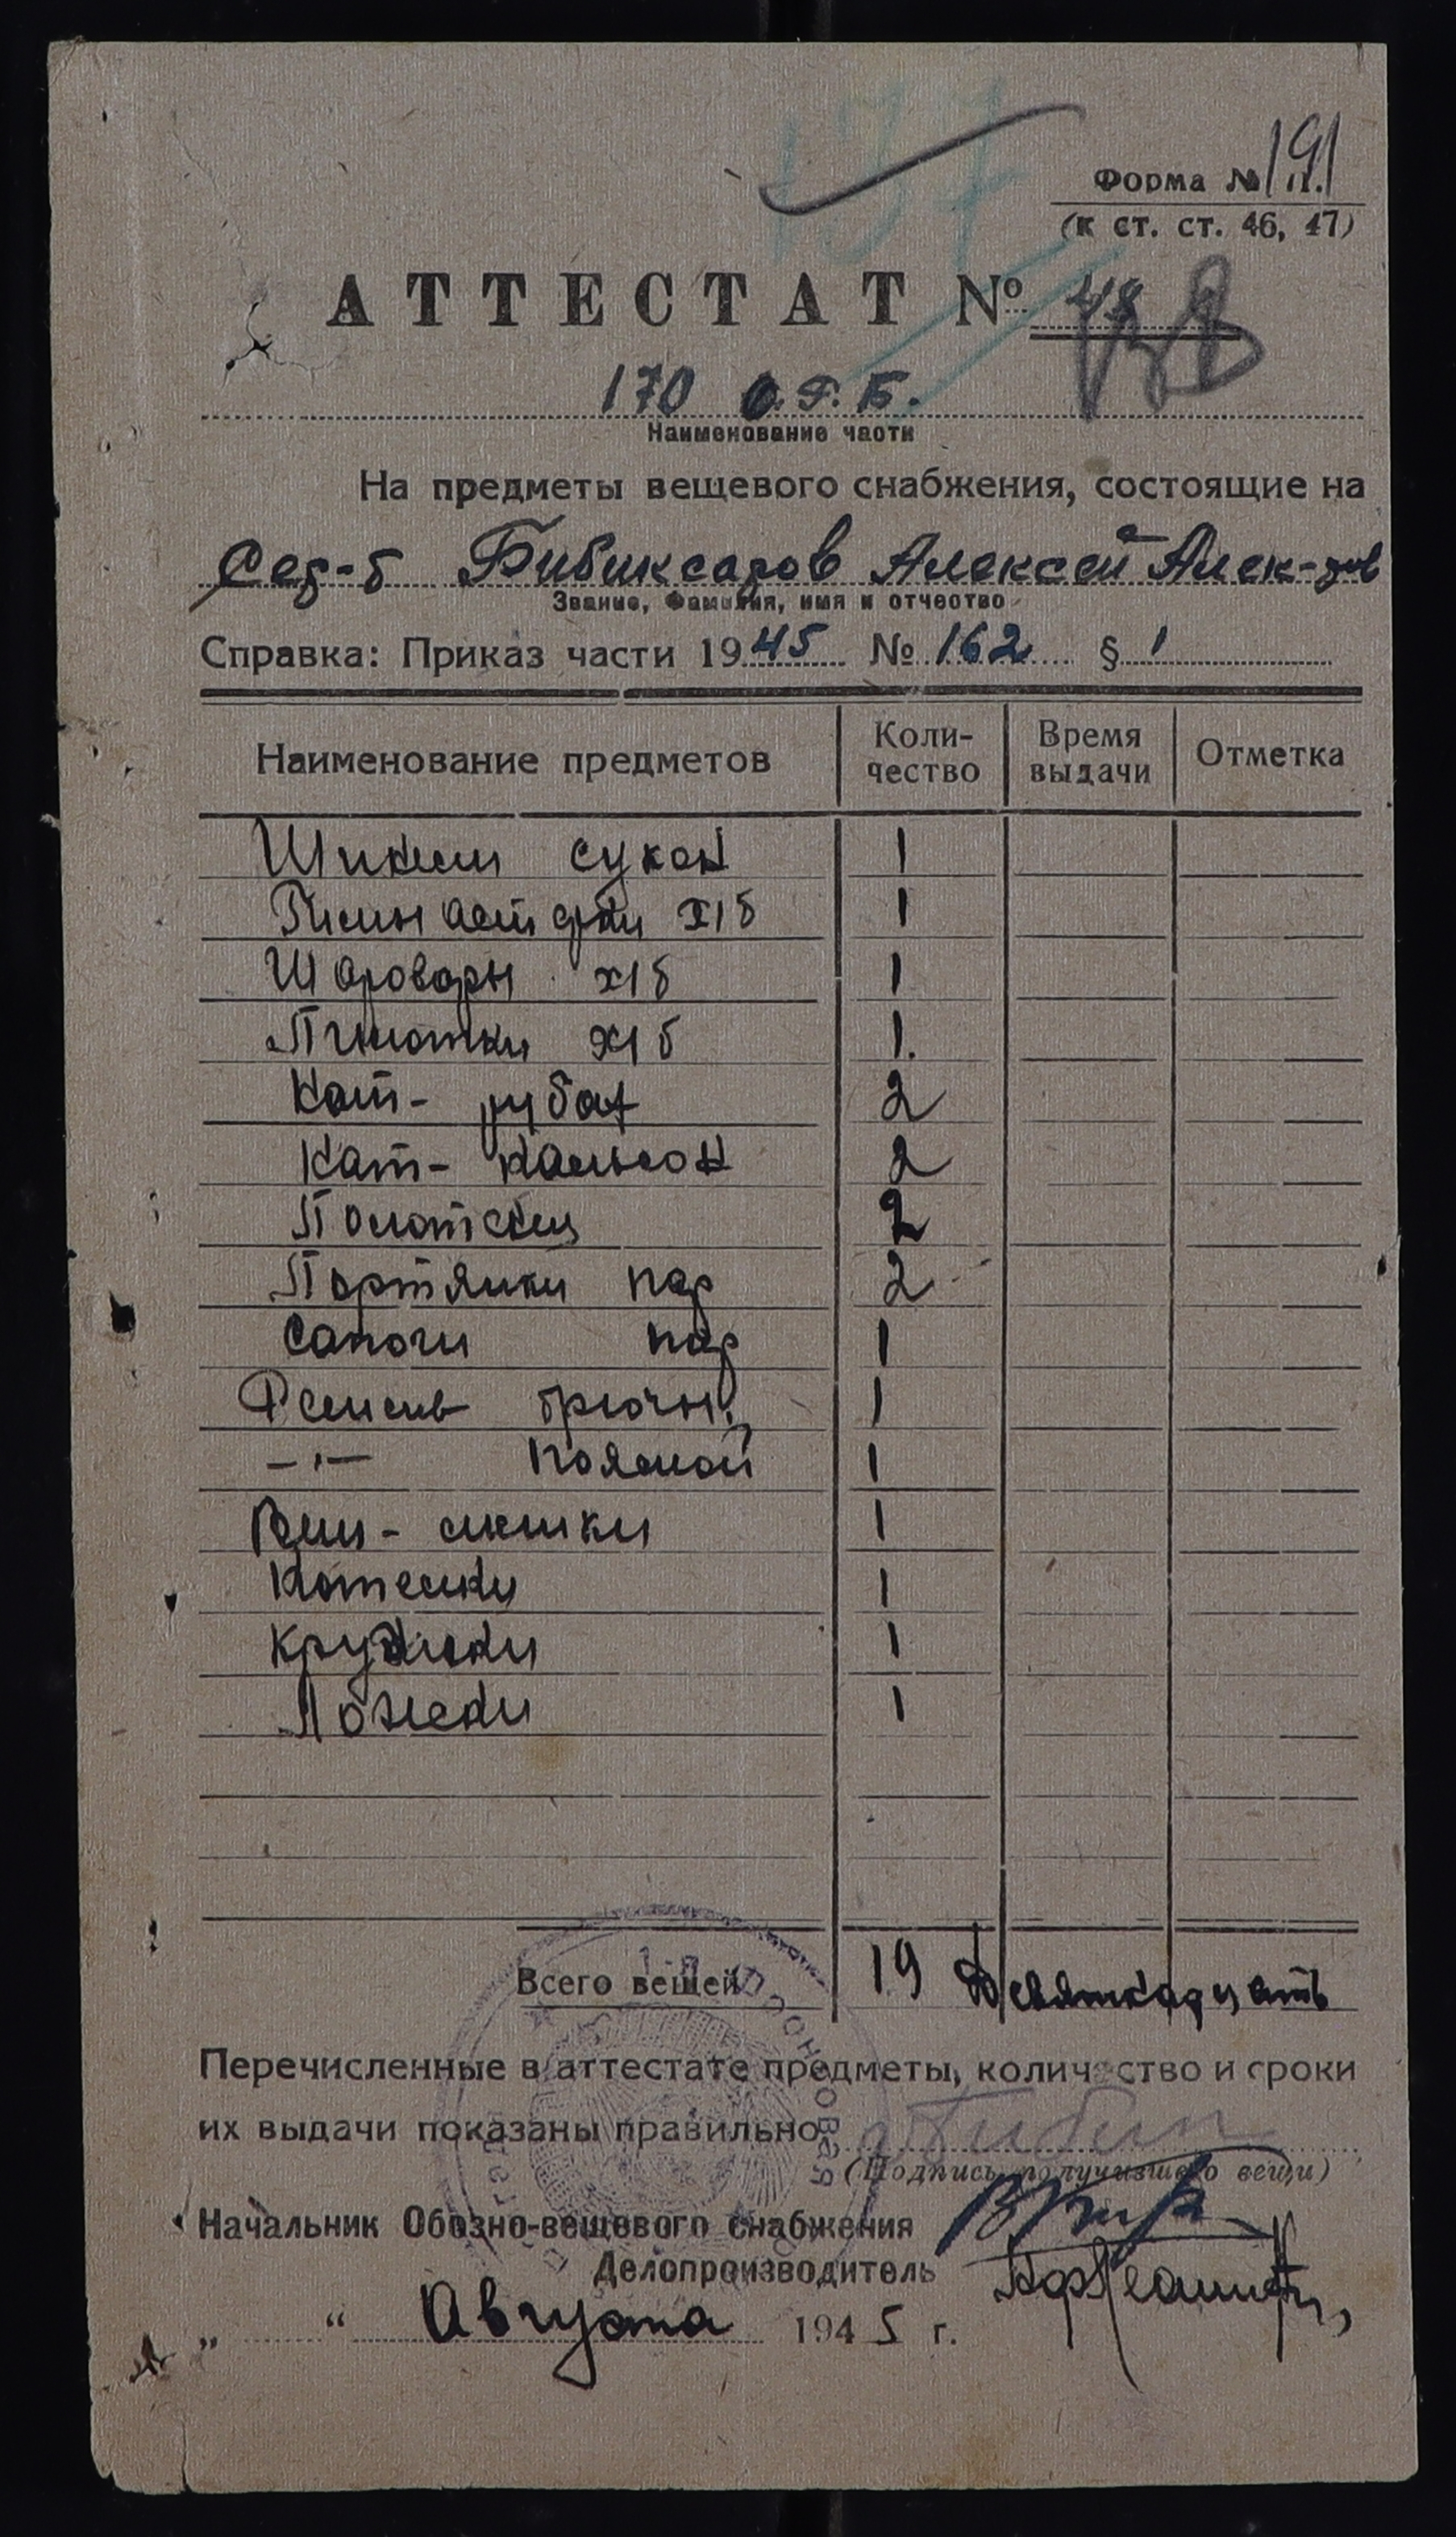 137
191
Форма № 11.
(к ст. ст. 46, 47)
АТТЕСТАТ № 48
170
Наименование части
На предметы вещевого снабжения, состоящие на
Бибиксаров Алексей Алек-
Звание, Фамилия, имя и отчество
Справка: Приказ части 1945 № 162 § 1
Наименование предметов Коли-чество Время выдачи Отметка
сукон 1
х/б 1
Шаровары х/б 1
х/б 1.
Нат- рубах 2
Нат- кальсон 2
2
Портянки пар 2
Сапоги пар 1
брючн. 1
—"— поясной 1
1
Котелки 1
Кружки 1
Ложки 1
Всего вещей 19 Девятнадцать
Перечисленные в аттестате предметы, количество и сроки
их выдачи показаны правильно
(Подпись получившего вещи)
Начальник Обозно-вещевого снабжения
Делопроизводитель
„ “ Августа 1945 г.